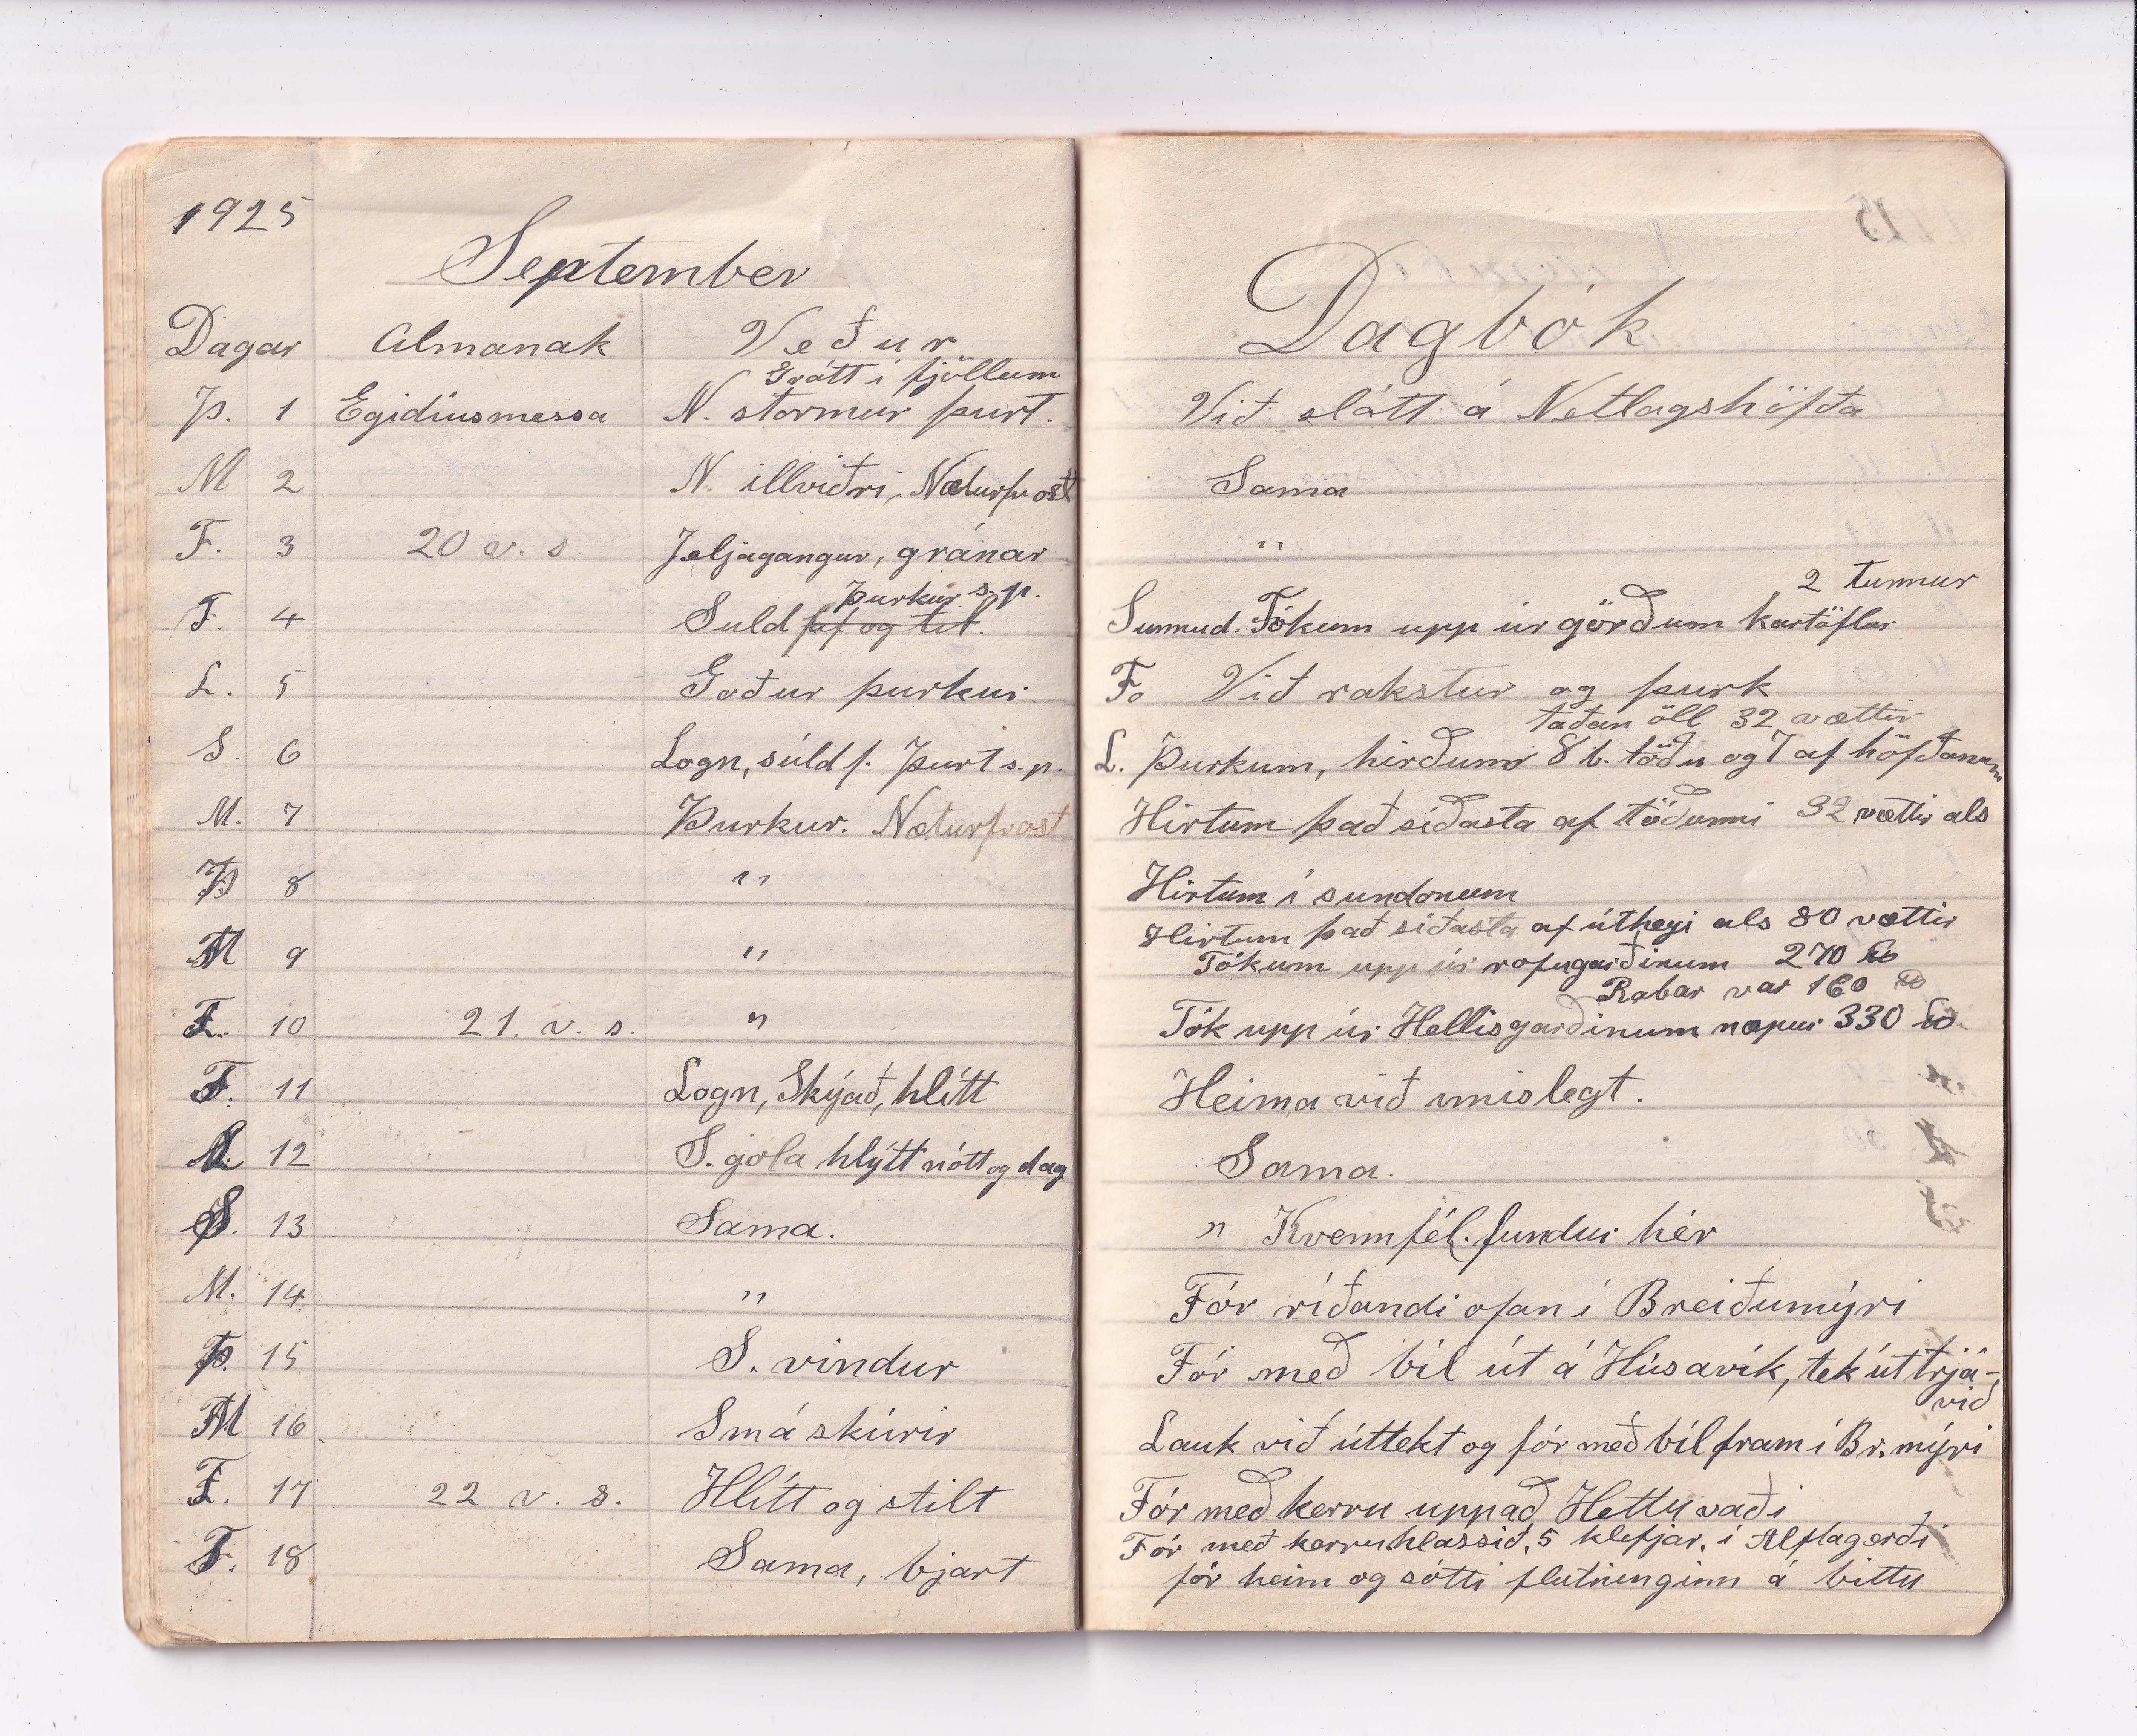 1925
September
Dagar Almanak Veður
Grátt í fjöllum
Þ. 1 Egidíusmessa N. stormur þurt.
M 2 N. illviðri, Næturfrost
F. 3 20 v. s. Jeljagangur, gránar
Þurkur s.p.
F. 4 Suld af og til.
L. 5 Goður þurkur
S. 6 Logn, súld f. Þurt s.p.
M. 7 Þurkur. Næturfrost
Þ 8 "
M 9 "
F. 10 21. v. s. "
F. 11 Logn, Skýað, hlítt
L. 12 S. gola hlýtt nótt og dag
S. 13 Sama.
M. 14 "
Þ. 15 S. vindur
M 16 Smá skúrir
F. 17 22 v. s. Hlítt og stilt
F. 18 Sama, bjart
Dagbók
Við slátt á Netlagshöfða
Sama
"
2 tunnur
Sunnud. Tókum upp úr görðum kartöflur
Fo Við rakstur og þurk
taðan öll 32 vættir
L. Þurkum, hirðum 8 b. töðu og 7 af höfðanum
Hirtum það síðasta af töðunni 32 vættir als
Hirtum í sundonum
Hirtum það síðasta af útheyi als 80 vættir
Tókum upp úr rofugarðinum 270 ℔
Rabar var 160 ℔
Tók upp úr Hellisgarðinum næpur 330 ℔.
Heima við imislegt.
Sama.
" Kvennfél. fundur hér
Fór ríðandi ofan í Breiðumýri
Fór með bíl út á Húsavík, tek út trjá-
við
Lauk við úttekt og fór með bíl fram í Br.mýri
Fór með kerru uppað Hettuvaði
Fór með kerruhlassið, 5 klefjar, í Alftagerði
fór heim og sótti flutninginn á bittu